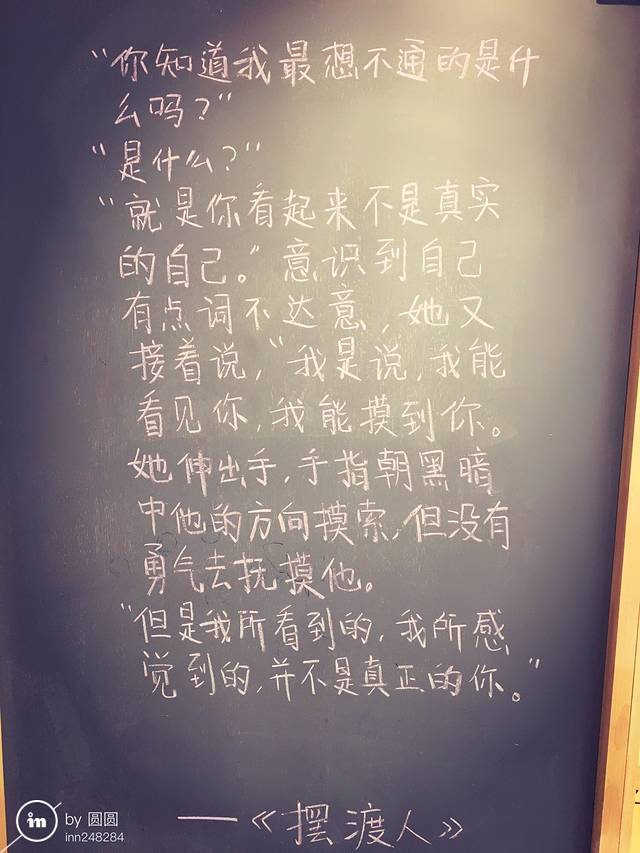 “你知道我最想不通的是什
么吗？”
“是什么？”
“就是你看起来不是真实
的自己。”意识到自己
有点词不达意，她又
接着说，“我是说，我能
看见你，我能摸到你。
她伸出手，手指朝黑暗
中他的方向摸索，但没有
勇气去抚摸他。
“但是我所看到的，我所感
觉到的，并不是真正的你。”
——《摆渡人》
in by 圆圆
inn248284